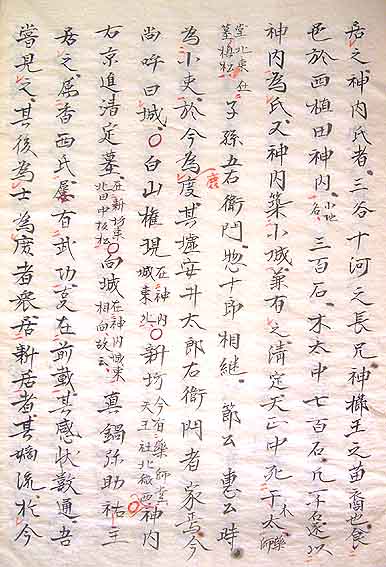 居之神内氏者三谷十河之長兄神櫛王之苗裔也食
邑於西植田神内小地名三百石木太中七百石凡千石遂以
神内為氏又神内築小城并有之清定天正中死于木太
葬堂北東丘墓植松子孫五右衛門惣十郎相継節公惠公時
為小吏於今為鹿其墟安井太郎右衛門者家焉今
尚呼曰城〇白山権現在神内城東北〇新坊今有薬師堂天王社北西神内
右京進清定墓在新坊東北田中板松〇向城在神内城東相向故云真鍋弥助祐主
居之属香西氏屡有武功支在前載其感状数通吾
嘗見之其後為士為庶者衆居新居者其嫡流於今